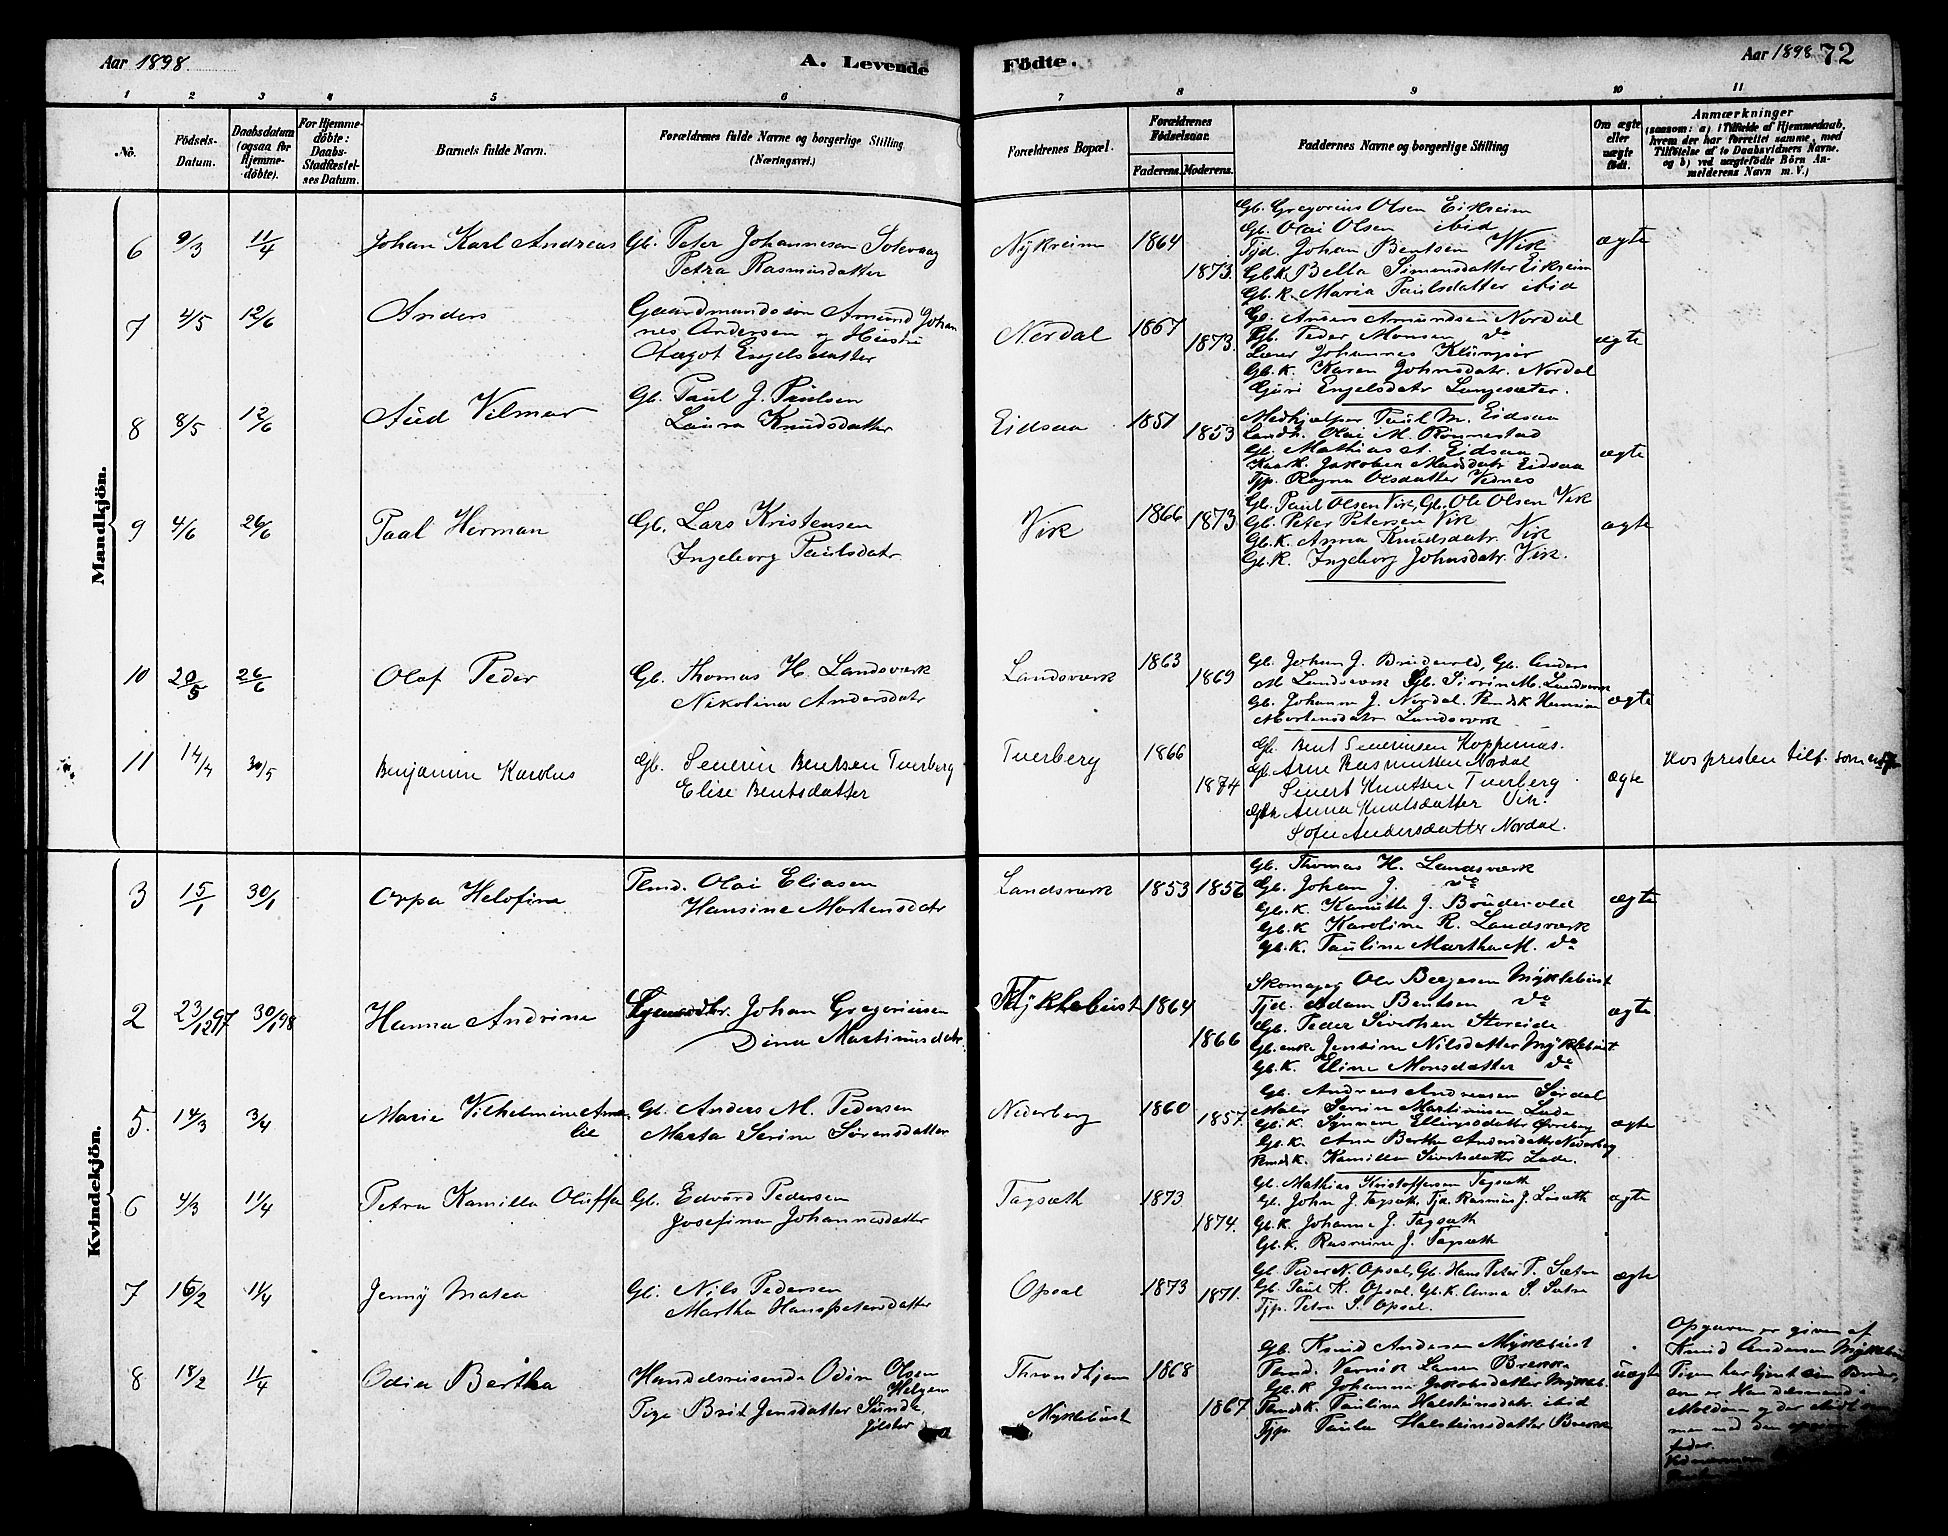 Aar 1898.
A. Levende
Födte.
Aar 1898
72
1 2 3 4 5 6 7 8 9 10 11
No.
Födsels-
Datum.
Daabsdatum
(ogsaa for
Hjemme-
döbte).
For Hjemme-
döbte:
Daabs-
Stadfæstel-
ses Datum.
Barnets fulde Navn.
Forældrenes fulde Navne og borgerlige Stilling
(Næringsvei.)
Forældrenes Bopæl.
Forældrenes
Födselsaar.
Faderens. Moderens.
Faddernes Navne og borgerlige Stilling
Om ægte
eller
uægte
födt.
Anmærkninger
(saasom: a) i Tilfælde af Hjemmedaab,
hvem der har forrettet samme, med
Tilföielse af to Daabsvidners Navne,
og b) ved uægtefödte Börn An-
melderens Navn m. V.)
Mandkjön.
6 9/3 11/4 Johan Karl Andreas
Gb. Peter Johannesen Solevaag
Petra Rasmusdatter
Nykreim 1864 1873.
Gb. Gregorius Olsen Eikreim
Gb. Olai Olsen ibid
Tjd. Johan Bentsen Vik
Gb.K. Bella Simonsdatter Eikreim
Gb.K. Maria Paulsdatter ibid
ægte
7 4/5 12/6 Anders
Gaardmandssön Amund Johan
nes Andersen og Hustru
Aagot Engelsdatter
Nordal 1867 1873.
Gb. Anders Amundsen Nordal
Gb. Peder Monsen do
Lærer Johannes
Gb.K. Karen Johnsdatr. Nordal
Guri Engelsdatr Langesæter.
ægte
8 8/5 12/6 Aud Vilmar
Gb. Paul J. Paulsen
Laura Knudsdatter
Eidsaa 1851 1853
Medhjælper Paul M. Eidsaa
Landh. Olai M. Rönnestad
Gb. Mathias A. Eidsaa
Kaark. Jakobea Madsdatr Eidsaa
Tjp. Ragna Olsdatter Vednes
ægte
9 4/6 26/6 Paal Herman
Gb. Lars Kristensen
Ingeborg Paulsdatr
Vik 1866 1873
Gb. Paul Olsen Vik, Gb. Ole Olsen Vik
Gb. Peter Petersen Vik
Gb.K. Anna Knudsdatr. Vik
Gb.K. Ingeborg Johnsdatr. Vik.
ægte
10 20/5 26/6 Olaf Peder
Gb. Thomas H. Landsværk
Nikolina Andersdatr
Landsværk 1863 1869
Gb. Johan J. Brudevold, Gb. Anders
M Landsværk Gb. Sivrin M. Landsværk
Gb. Johanna J. Nordal. Pmdsk
Mortensdatr Landsværk
ægte
11 14/4 30/5 Benjamin Karolus
Gb. Severin Bentsen Tverberg
Elise Bentsdatter
Tverberg 1866 1874
Gb. Bent Severinsen Koppernæs.
Gb. Arne Rasmussen Nordal
Severt Knutsen Tverberg
Anna Knutsdatter Vik.
Sofie Andersdatter Nordal.
ægte
Hos presten tilf. som
Kvindekjön.
3 15/1 30/1 Orpa Helofine
Plmd. Olai Eliasen
Hansine Mortensdatr
Landsværk 1853 1856
Gb. Thomas H. Landsværk
Gb. Johan J. do
Gb.K. Kanutte J. Brudevold
Gb.K Karoline R. Landsværk
Gb.K. Pauline Martha M. do
ægte
2 23/12 97 30/1 98 Hanna Andrine
Johan Gregoriusen
Dina Martinusdatr
Myklebust 1864 1866
Skomager Ole Myklebust
Tjd. Adam Bentsen do
Gb. Peder Sivertsen Storeide
Gb. enke Jensine Nilsdatter Myklebust
Gb.K. Eline Monsdatter do
ægte
5. 14/3 3/4 Marie Vilhelmine Ama
lie
Gb. Anders M. Pedersen
Marta Serine Sörensdatter
Nederberg 1860 1857.
Gb. Andreas Andreasen Sördal
Maler Severin Martinusen Lade
Gb.K. Synneve Ellingsdatter
Gb.K. Ane Bertha Andersdatter Nederberg
Pmdsk. Kamilla Sivertsdatter Lade.
ægte
6 4/3 11/4 Petra Kamilla Oluffa
Gb. Edvard Pedersen
Josefina Johannesdatter
Tagsæth 1873 1874.
Gb. Mathias Kristoffersen Tagsæth
Gb. John J. Tagsæth, Tjd. Rasmus J.
Gb.K. Johanne J. Tagsæth
Gb.K. Rasmine J. Tagsæth
ægte
7 16/2 11/4 Jenny Matea
Gb. Nils Pedersen
Martha Hanspetersdatter
Opsal 1873 1871.
Gb. Peder N. Opsal, Gb. Hans Peter P. Sætre
Gb. Paul K. Opsal, Gb.K. Anna S. Sætre
Tjp. Petra S. Opsal.
ægte
8 18/2 11/4 Odia Bertha
Handelsreisende Odin Olsen
Helgesen
Pige Brit Jensdatter Sunde
Jölster
Throndhjem 1868
Myklebust 1867
Gb. Knud Andersen Myklebust
Plmd. Larsen Brekke
Gb.K Johanne Jakobsdatter Mykleb.
Pmdsk. Paulina Halsteinsdatr. ibid
Tjp. Paula Halsteinsdatter Brekke
uægte
Opgaven er given af
Knud Andersen Myklebust
Pigen har tjent
som er Handelsmand i
Molde og der
men med den
fader.